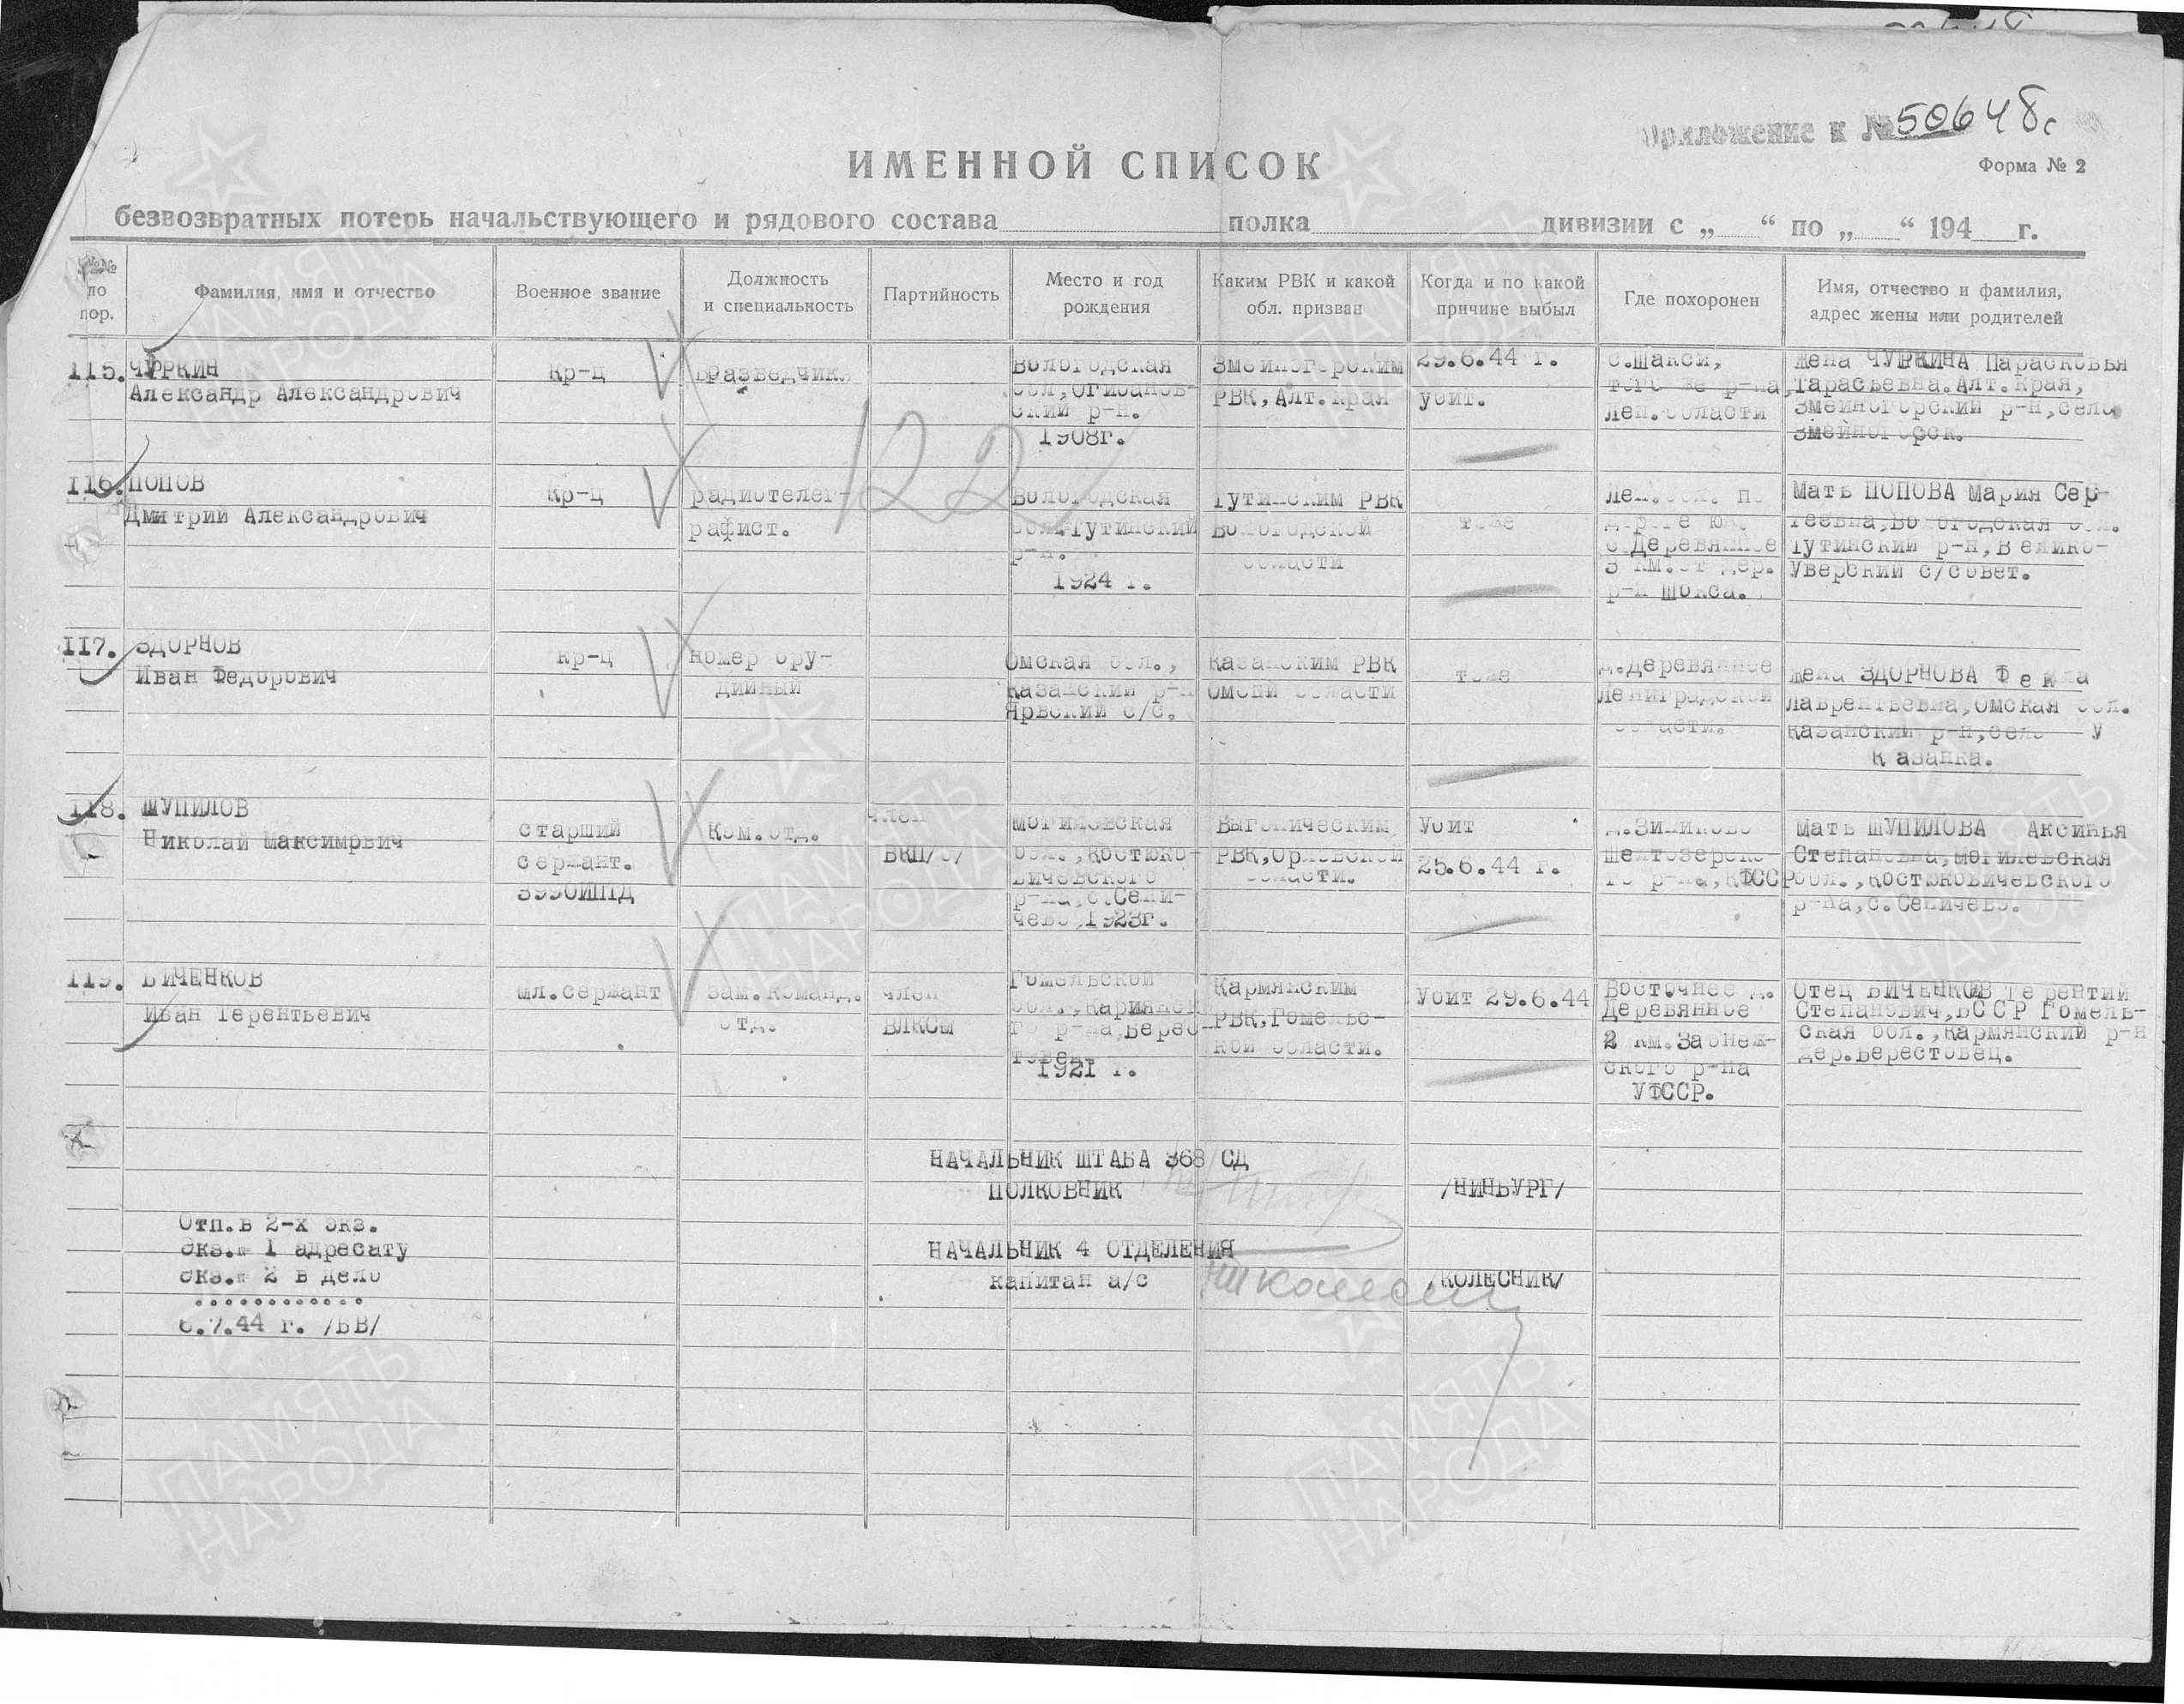 Приложение к № 50648с
ИМЕННОЙ СПИСОК
Форма № 2
безвозвратных потерь начальствующего и рядового состава полка дивизии с „ “ по „ “ 194 г.
№№ по пор.
Фамилия, имя и отчество
Военное звание
Должность
и специальность
Партийность
Место и год
рождения
Каким РВК и какой
обл. призван
Когда и по какой
причине выбыл
Где похоронен
Имя, отчество и фамилия,
адрес жены или родителей
115. ЧУРКИН
Александр Александрович
Кр-ц
разведчик
Вологодская
ский р-н.
1908г.
Змеиногорским
РВК, Алт.края
29.6.44 г.
убит.
с.Шакси,
того же р-на,
Лен.области
Жена ЧУРКИНА Парасковья
Тарасьевна.Алт.края,
Змейногорский р-н, село
Змейногорск.
122
116. ПОПОВ
Дмитрий Александрович
Кр-ц
радиотелег-
рафист.
Вологодская
обл.Тутинский
р-н.
1924 г.
Тутинским РВК
Вологодской
области
тоже
Лен.обл. по
дороге
с.Деревянное
3 км.от дер.
р-н Шокса.
Мать ПОПОВА Мария Сер-
геевна,Вологодская обл.
Тутинский р-н,Велико-
Уверский с/совет.
117. ЗДОРНОВ
Иван Федорович
Кр-ц
номер ору-
дийный
Омская обл.,
Казанский р-н
Ярвский с/с.
Казанским РВК
Омской области
тоже
д.Деревянное
Ленинградской
области.
Жена ЗДОРНОВА Фекла
Лаврентьевна,Омская обл.
Казанский р-н,село У
Казанка.
118. ШУПИЛОВ
Николай Максимович
старший
сержант.
3990ИПТД
Ком.отд.
член
ВКП/б/
Могилевская
обл.,Костюко-
вичевского
р-на,с.Сели-
чево,1923г.
Выгоническим
РВК,Орловской
области.
Убит
25.6.44 г.
д.Зиликово
Шелтозерско-
го р-на,КФССР
Мать ШУПИЛОВА Аксинья
Степановна,Могилевская
обл.,Костюковичевского
р-на,с.Селичево.
119. БИЧЕНКОВ
Иван Терентьевич
мл.сержант
Зам.команд.
отд.
член
ВЛКСМ
Гомельской
обл.,Кармянско-
го р-на,Берес-
товец
1921 г.
Кармянским
РВК,Гомельс-
кой области.
Убит 29.6.44
Восточнее д.
Деревянное
2 км.Заонеж-
ского р-на
УФССР.
Отец БИЧЕНКОВ Терентий
Степанович,БССР Гомель-
ская обл.,Кармянский р-н
дер.Берестовец.
НАЧАЛЬНИК ШТАБА 368 СД
ПОЛКОВНИК /НИНБУРГ/
НАЧАЛЬНИК 4 ОТДЕЛЕНИЯ
капитан а/с /КОЛЕСНИК/
Отп.в 2-х экз.
Экз.№ 1 адресату
экз.№ 2 в дело
6.7.44 г. /БВ/
ПАМЯТЬ
НАРОДА